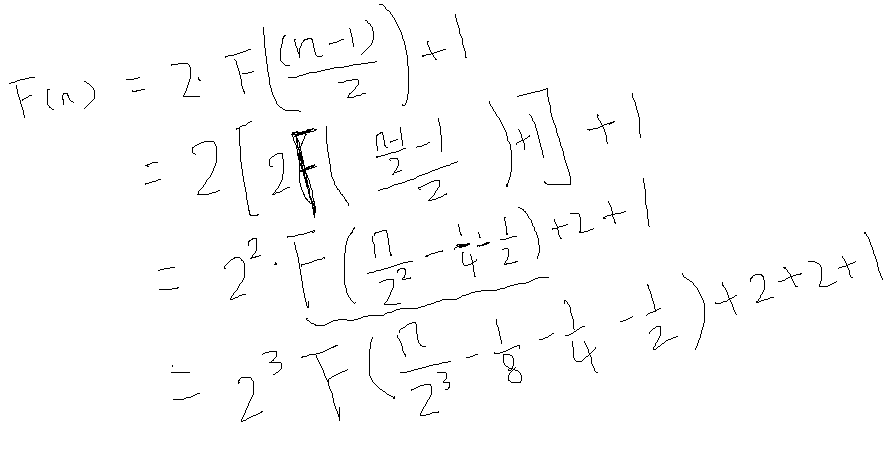 F(n) = 2 · F((n-1)/2) + 1
= 2 [ 2F( ((n-1)/2 - 1)/2 ) + 1 ] + 1
= 2² · F( n/2² - 1/4 - 1/2 ) + 2 + 1
= 2³ F( n/2³ - 1/8 - 1/4 - 1/2 ) + 2 + 2 + 1